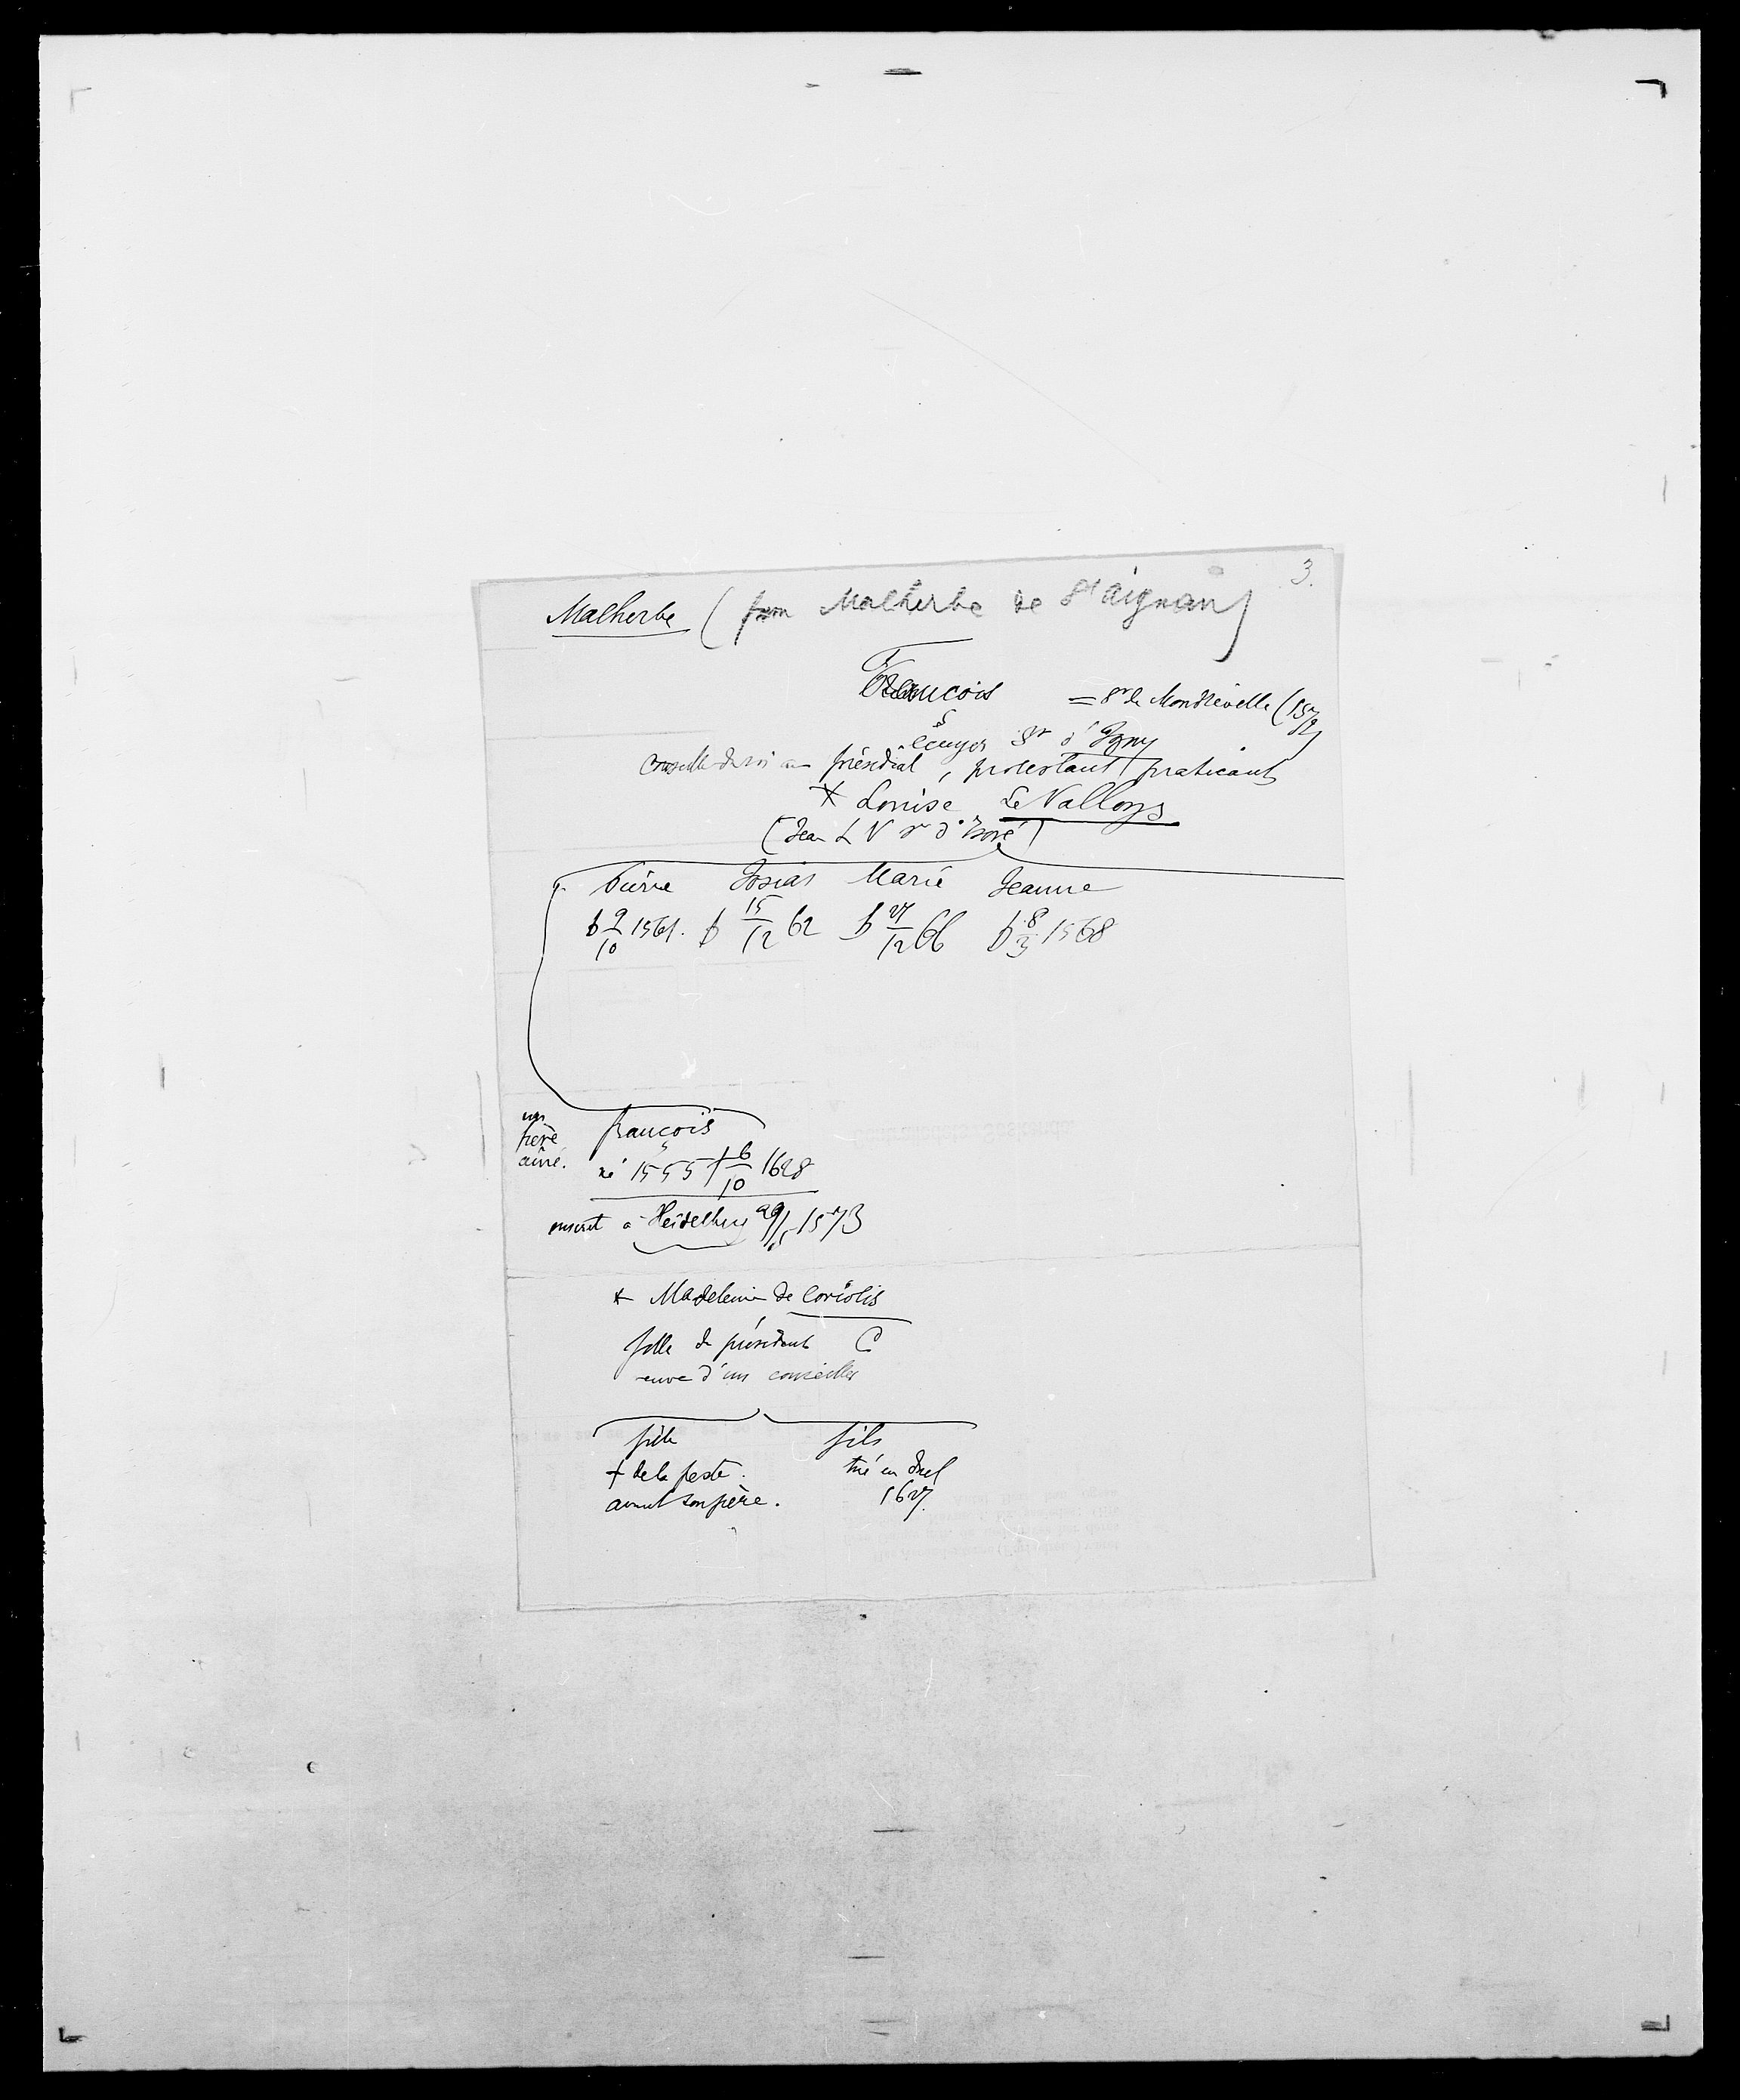 3.
Malherbe (fam Malherbe de St Aignan)
François = Sr de Mondreville (1572)
écuyer Sr d'Igny
conseiller du roi au présidial, protestant pratiquant
x Louise Le Valloys
(Jean L V Sr d'
Pierre Josias Marie Jeanne
b 9/10 1561. b 15/12 62 b 27/12 66 b 8/3 1568
un frère aîné.
françois
né 1555 + 6/10 1628
inscrit à Heidelberg 29/ 1573
x Madeleine de Coriolis
fille du président C
veuve d'un conseiller
fille fils
+ de la peste. tué en duel
avant son père. 1627.